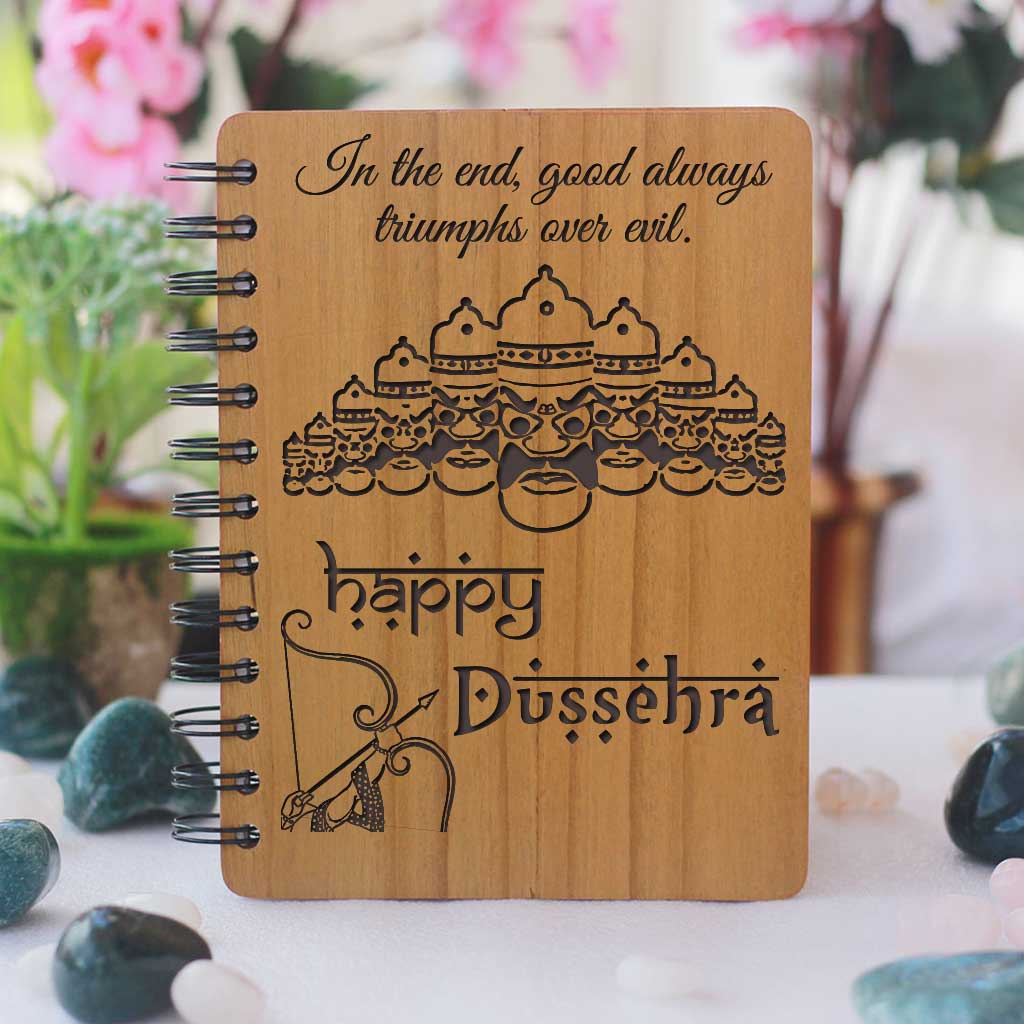 In the end, good always
triumphs over evil.
happy
Dussehra